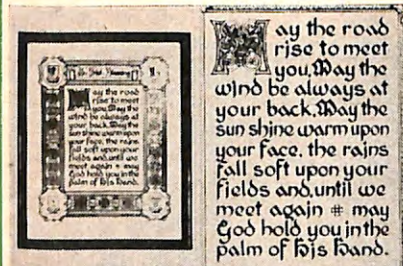 An Irish Blessing
May the road
rise to meet
you, May the
wind be always at
your back, May the
sun shine warm upon
your face, the rains
fall soft upon your
fields and, until we
meet again + may
God hold you in the
palm of his hand.
May the road
rise to meet
you, May the
wind be always at
your back, May the
sun shine warm upon
your face, the rains
fall soft upon your
fields and, until we
meet again # may
God hold you in the
palm of his hand.